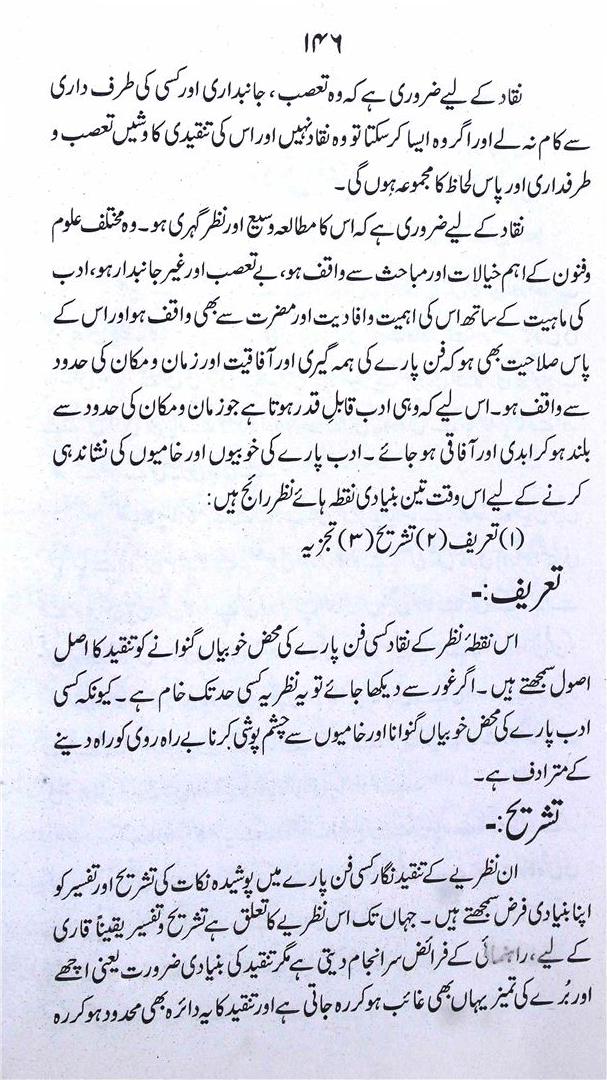 ۱۴۶
نقاد کے لیے ضروری ہے کہ وہ تعصب، جانبداری اور کسی کی طرف داری
سے کام نہ لے اور اگر وہ ایسا کر سکتا تو وہ نقاد نہیں اور اس کی تنقیدی کاوشیں تعصب و
طرفداری اور پاس لحاظ کا مجموعہ ہوں گی۔
نقاد کے لیے ضروری ہے کہ اس کا مطالعہ وسیع اور نظر گہری ہو۔ وہ مختلف علوم
و فنون کے اہم خیالات اور مباحث سے واقف ہو، بے تعصب اور غیر جانبدار ہو، ادب
کی ماہیت کے ساتھ اس کی اہمیت وافادیت اور مضرت سے بھی واقف ہو اور اس کے
پاس صلاحیت بھی ہو کہ فن پارے کی ہمہ گیری اور آفاقیت اور زمان و مکان کی حدود
سے واقف ہو۔ اس لیے کہ وہی ادب قابلِ قدر ہوتا ہے جو زمان و مکان کی حدود سے
بلند ہو کر ابدی اور آفاقی ہو جائے۔ ادب پارے کی خوبیوں اور خامیوں کی نشاندہی
کرنے کے لیے اس وقت تین بنیادی نقطہ ہائے نظر رائج ہیں:
(۱) تعریف (۲) تشریح (۳) تجزیہ
تعریف:-
اس نقطۂ نظر کے نقاد کسی فن پارے کی محض خوبیاں گنوانے کو تنقید کا اصل
اصول سمجھتے ہیں۔ اگر غور سے دیکھا جائے تو یہ نظریہ کسی حد تک خام ہے۔ کیونکہ کسی
ادب پارے کی محض خوبیاں گنوانا اور خامیوں سے چشم پوشی کرنا بے راہ روی کو راہ دینے
کے مترادف ہے۔
تشریح:-
ان نظریے کے تنقید نگار کسی فن پارے میں پوشیدہ نکات کی تشریح اور تفسیر کو
اپنا بنیادی فرض سمجھتے ہیں۔ جہاں تک اس نظریے کا تعلق ہے تشریح و تفسیر یقیناً قاری
کے لیے، راہنمائی کے فرائض سرانجام دیتی ہے مگر تنقید کی بنیادی ضرورت یعنی اچھے
اور بُرے کی تمیز یہاں بھی غائب ہو کر رہ جاتی ہے اور تنقید کا یہ دائرہ بھی محدود ہو کر رہ